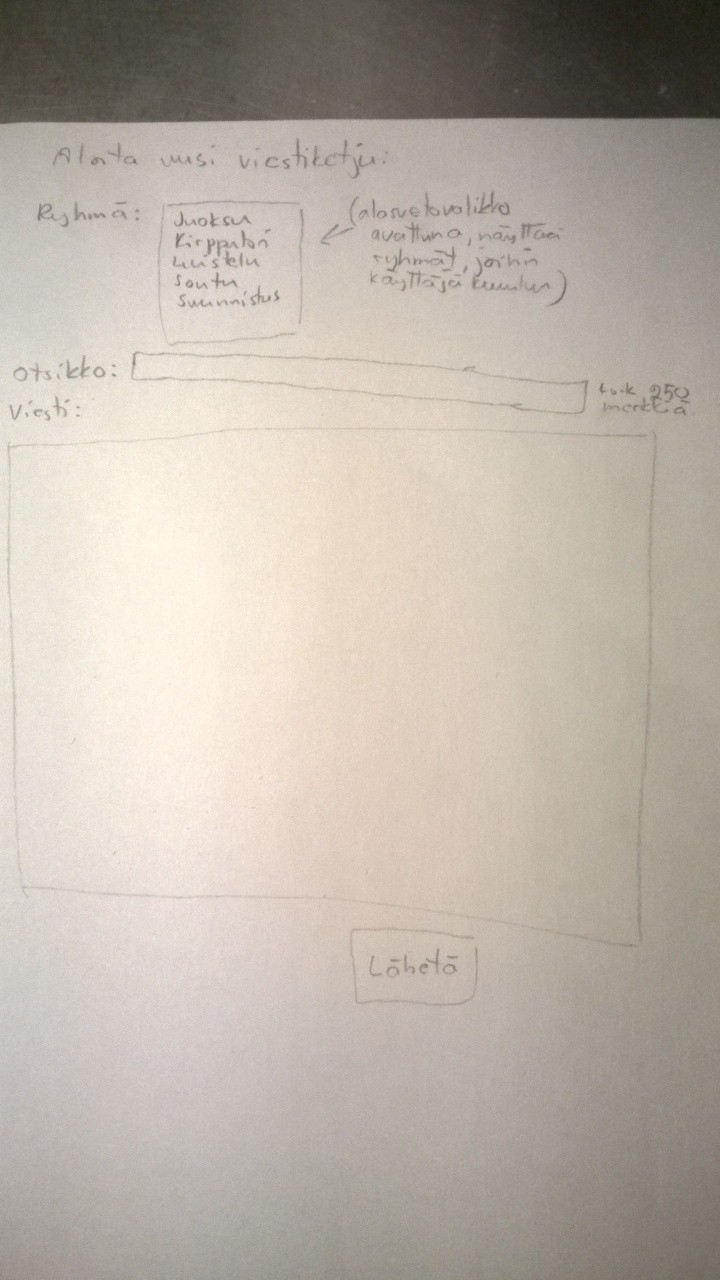 Aloita uusi viestiketju:
Ryhmä:
Juoksu
Kirpputori
Luistelu
Soutu
Suunnistus
(alasvetovalikko
avattuna, näyttää
ryhmät, joihin
käyttäjä kuuluu)
Otsikko:
250
merkkiä
Viesti:
Lähetä